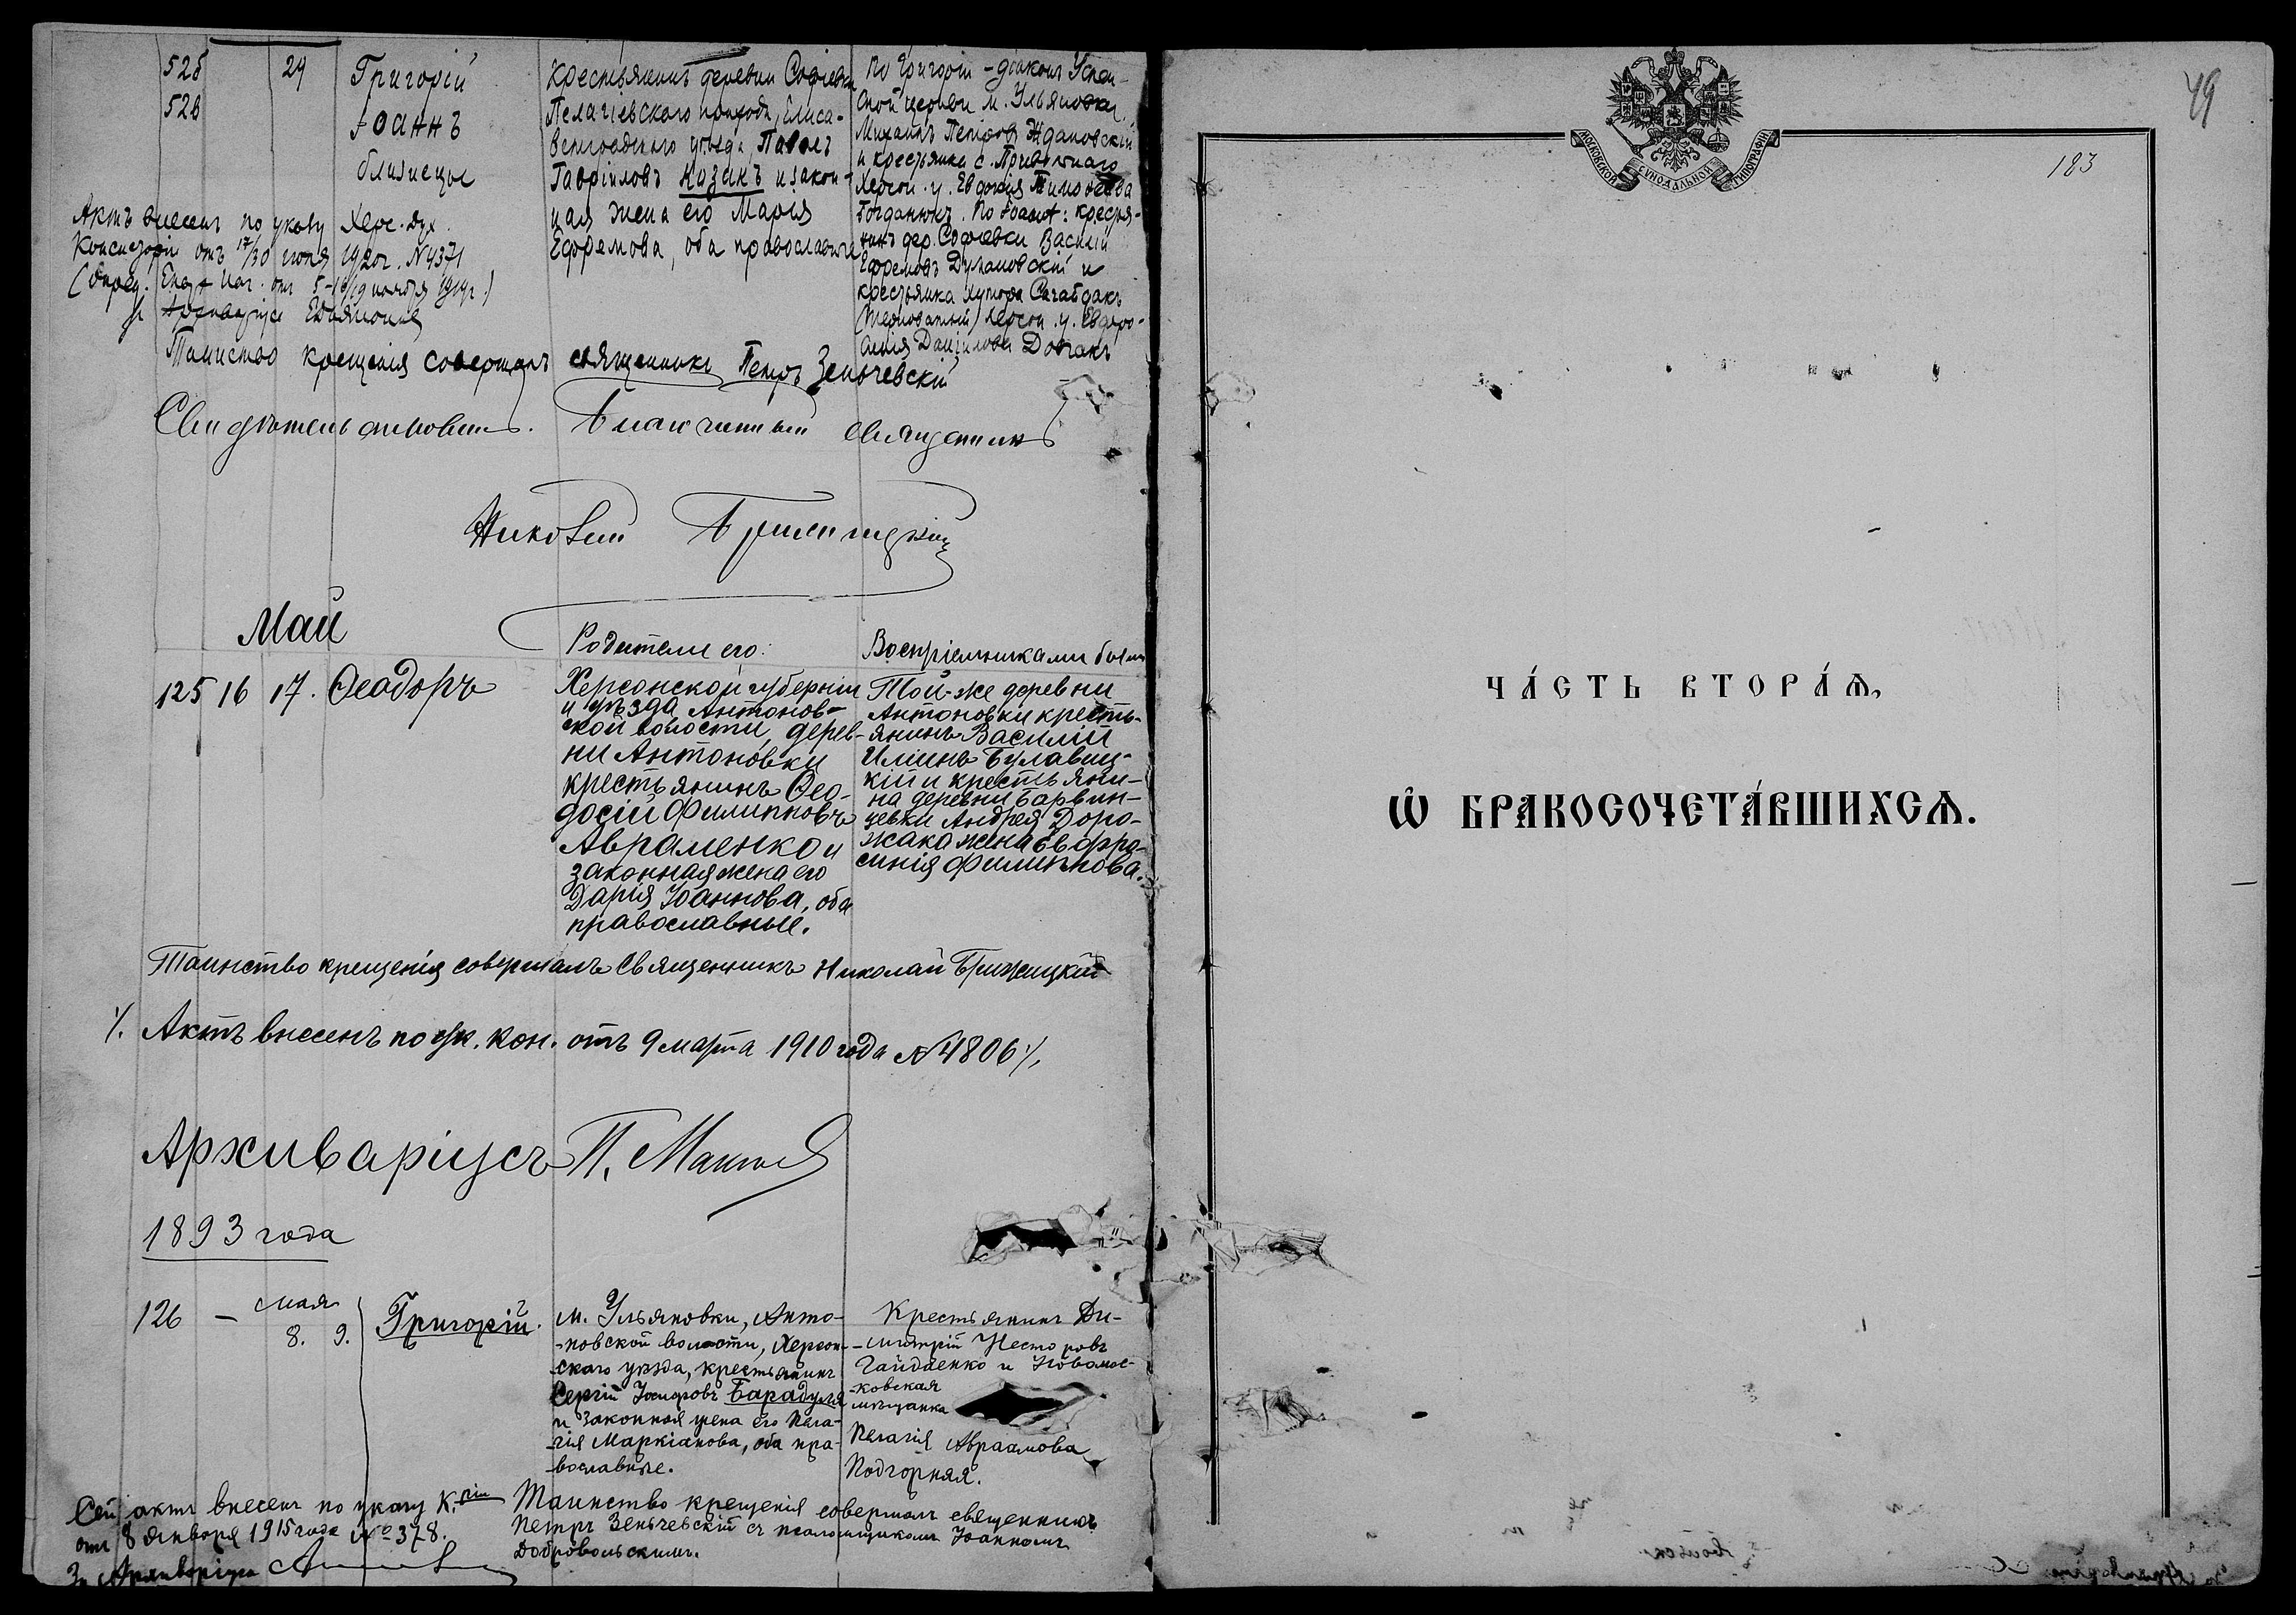 52б 24 Григорій
52в Іоаннъ
близнецы
Крестьянинъ деревни Софіевки
Пелагіевскаго прихода, Елиса-
ветградскаго уѣзда, Павелъ
Гавріиловъ Козакъ и закон-
ная жена его Марія
Ефремова, оба православные
По Григоріи - діаконъ Успен-
ской церкви м. Ульяновки
Михаилъ Петровъ Ждановскій
и крестьянка с. Привольнаго
Херсон. у. Евдокія Тимофеева
Богданюкъ. По Іоаннѣ: крестья-
нинъ дер. Софіевки Василій
Ефремовъ Дулановскій и
крестьянка хутора Сагайдакъ
Херсон. у. Евфро-
синія Даніилова Довгакъ
Актъ внесенъ по указу Херс. Дух.
Консисторіи отъ 17/30 іюня 1920г. N4371
Таинство крещенія совершалъ священникъ Петръ Зеньчевскій
Свидѣтельствовалъ. Благочинный священникъ
Николай Брижицкій
Май
Родители его: Воспріемниками были
125 16 17. Ѳеодоръ
Херсонской губерніи
и уѣзда Антонов-
ской волости, дерев-
ни Антоновки
крестьянинъ Ѳео-
досій Филипповъ
Авраменко и
законная жена его
Дарія Іоаннова, оба
православные.
Той-же деревни
Антоновки кресть-
янинъ Василій
Илiинъ Булавиц-
кій и крестьяни-
на деревни Барвин-
цевки Андрея Доро-
жака жена Евфро-
синія Филиппова.
Таинство крещенія совершалъ Священникъ Николай Брижицкій
Актъ внесенъ по ук. кон. отъ 9 марта 1910 года N4806
Архиваріусъ П.
1893 года
126 — мая
8. 9. Григорій.
м. Ульяновки, Анто-
-новской волости, Херсон-
-скаго уѣзда, крестьянинъ
Сергій Іосифовъ Барадуля
и законная жена его Пела-
-гія Маркіанова, оба пра-
-вославные.
Крестьянинъ Ди-
-митрій Несторовъ
Гайдаенко и Новомос-
-ковская
мѣщанка
Пелагія Авраамова
Подгорная.
Сей актъ внесенъ по указу К.ріи
отъ 8 Января 1915 года №378.
За Архиваріуса
Таинство крещенія совершалъ священникъ
Петръ Зеньчевскій съ псаломщикомъ Іоанномъ
Добровольскимъ.
49
183
МОСКОВСКОЙ СѴНОДАЛЬНОЙ ТИПОГРАФІИ
ЧА́СТЬ ВТОРА́Ѧ,
Ѽ БРАКОСОЧЕТА́ВШИХСѦ.